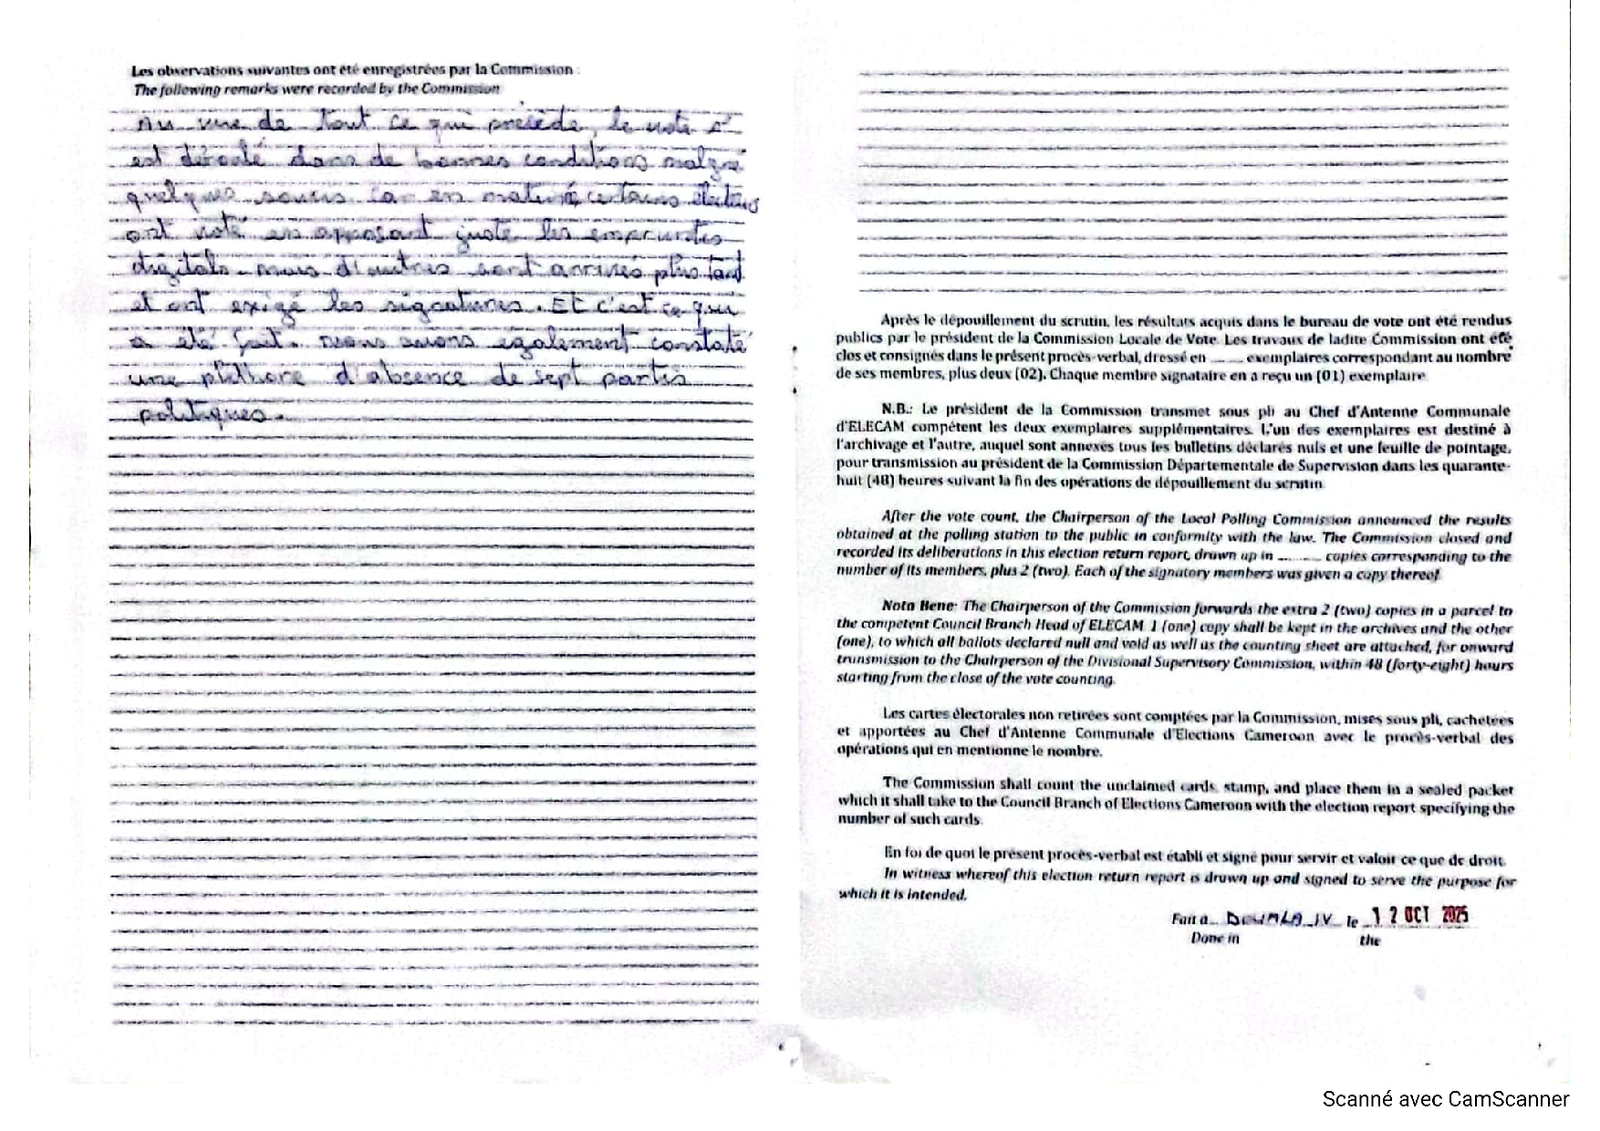 Les observations suivantes ont été enregistrées par la Commission :
The following remarks were recorded by the Commission
Au vue de tout ce qui précède, le vote s'
est déroulé dans de bonnes conditions malgré
quelques soucis car en matinée certains électeurs
ont voté en apposant juste les empreintes
digitals. mais d'autres sont arrivés plus tard
et ont exigé les signatures. Et c'est ce qui
a été fait. nous avons également constaté
une pléthore d'absence de sept partis
politiques.
Après le dépouillement du scrutin, les résultats acquis dans le bureau de vote ont été rendus
publics par le président de la Commission Locale de Vote. Les travaux de ladite Commission ont été
clos et consignés dans le présent procès-verbal, dressé en ........ exemplaires correspondant au nombre
de ses membres, plus deux (02). Chaque membre signataire en a reçu un (01) exemplaire
N.B.: Le président de la Commission transmet sous pli au Chef d'Antenne Communale
d'ELECAM compétent les deux exemplaires supplémentaires. L'un des exemplaires est destiné à
l'archivage et l'autre, auquel sont annexés tous les bulletins déclarés nuls et une feuille de pointage,
pour transmission au président de la Commission Départementale de Supervision dans les quarante-
huit (48) heures suivant la fin des opérations de dépouillement du scrutin
After the vote count, the Chairperson of the Local Polling Commission announced the results
obtained at the polling station to the public in conformity with the law. The Commission closed and
recorded its deliberations in this election return report, drawn up in ......... copies corresponding to the
number of its members, plus 2 (two). Each of the signatory members was given a copy thereof
Nota Bene: The Chairperson of the Commission forwards the extra 2 (two) copies in a parcel to
the competent Council Branch Head of ELECAM 1 (one) copy shall be kept in the archives and the other
(one), to which all ballots declared null and void as well as the counting sheet are attached, for onward
transmission to the Chairperson of the Divisional Supervisory Commission, within 48 (forty-eight) hours
starting from the close of the vote counting.
Les cartes électorales non retirées sont comptées par la Commission, mises sous pli, cachetées
et apportées au Chef d'Antenne Communale d'Elections Cameroon avec le procès-verbal des
opérations qui en mentionne le nombre.
The Commission shall count the unclaimed cards, stamp, and place them in a sealed packet
which it shall take to the Council Branch of Elections Cameroon with the election report specifying the
number of such cards
En foi de quoi le présent procès-verbal est établi et signé pour servir et valoir ce que de droit.
In witness whereof this election return report is drawn up and signed to serve the purpose for
which it is intended.
Fait à DOUALA IV le 12 OCT 2025
Done in the
Scanné avec CamScanner